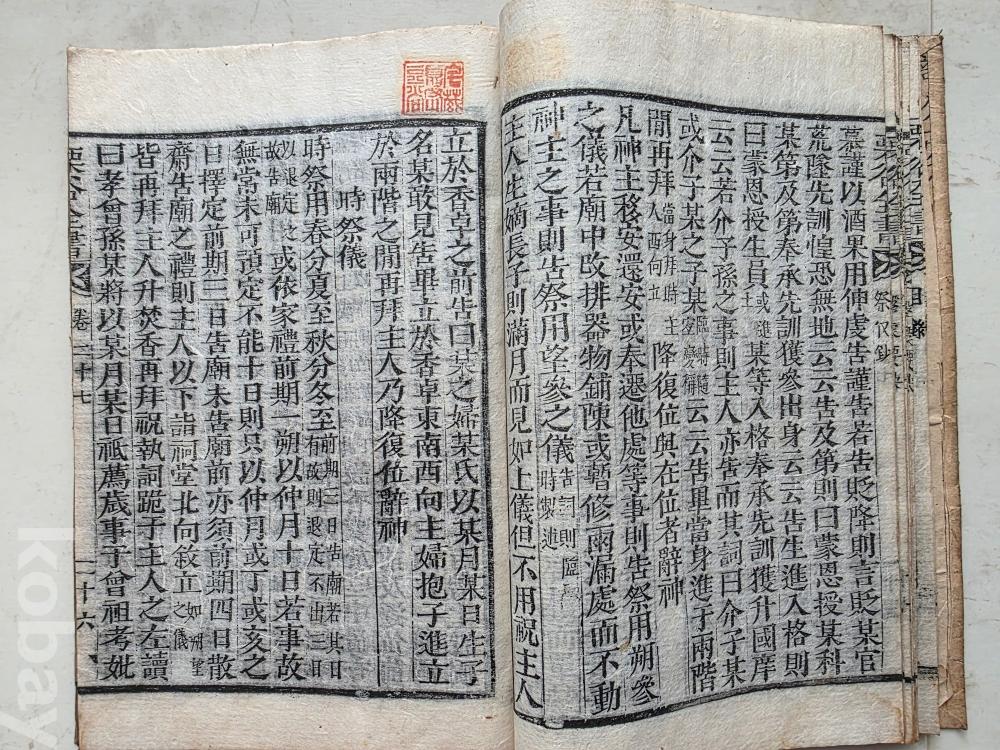 慕謹以酒果用伸虔告謹告若告貶降則言貶某官
荒墜先訓惶恐無地云云告及第則曰蒙恩授某科
某第及第奉承先訓獲參出身云云告生進入格則
曰蒙恩授生員或進士某等入格奉承先訓獲升國庠
云云若介子孫之事則主人亦告而其詞曰介子某
或介子某之子某云云告畢當身進于兩階
間再拜當身拜時主人西向立降復位與在位者辭神
凡神主移安還安或奉遷他處等事則告祭用朔參
之儀若廟中改排器物鋪陳或暫修雨漏處而不動
神主之事則告祭用望參之儀告詞則臨時製述
主人生嫡長子則滿月而見如上儀但不用祝主人
立於香卓之前告曰某之婦某氏以某月某日生子
名某敢見告畢立於香卓東南西向主婦抱子進立
於兩階之間再拜主人乃降復位辭神
時祭儀
時祭用春分夏至秋分冬至前期三日告廟若其日有故則退定不出三日
以退定之故告廟或依家禮前期一朔以仲月十日若事故
無常未可預定不能十日則只以仲月或丁或亥之
日擇定前期三日告廟未告廟前亦須前期四日散
齋告廟之禮則主人以下詣祠堂北向敘立如朔望之儀
皆再拜主人升焚香再拜祝執詞跪于主人之左讀
曰孝曾孫某將以某月某日祗薦歲事于曾祖考妣
栗谷全書
卷二十七
二十六
kobay